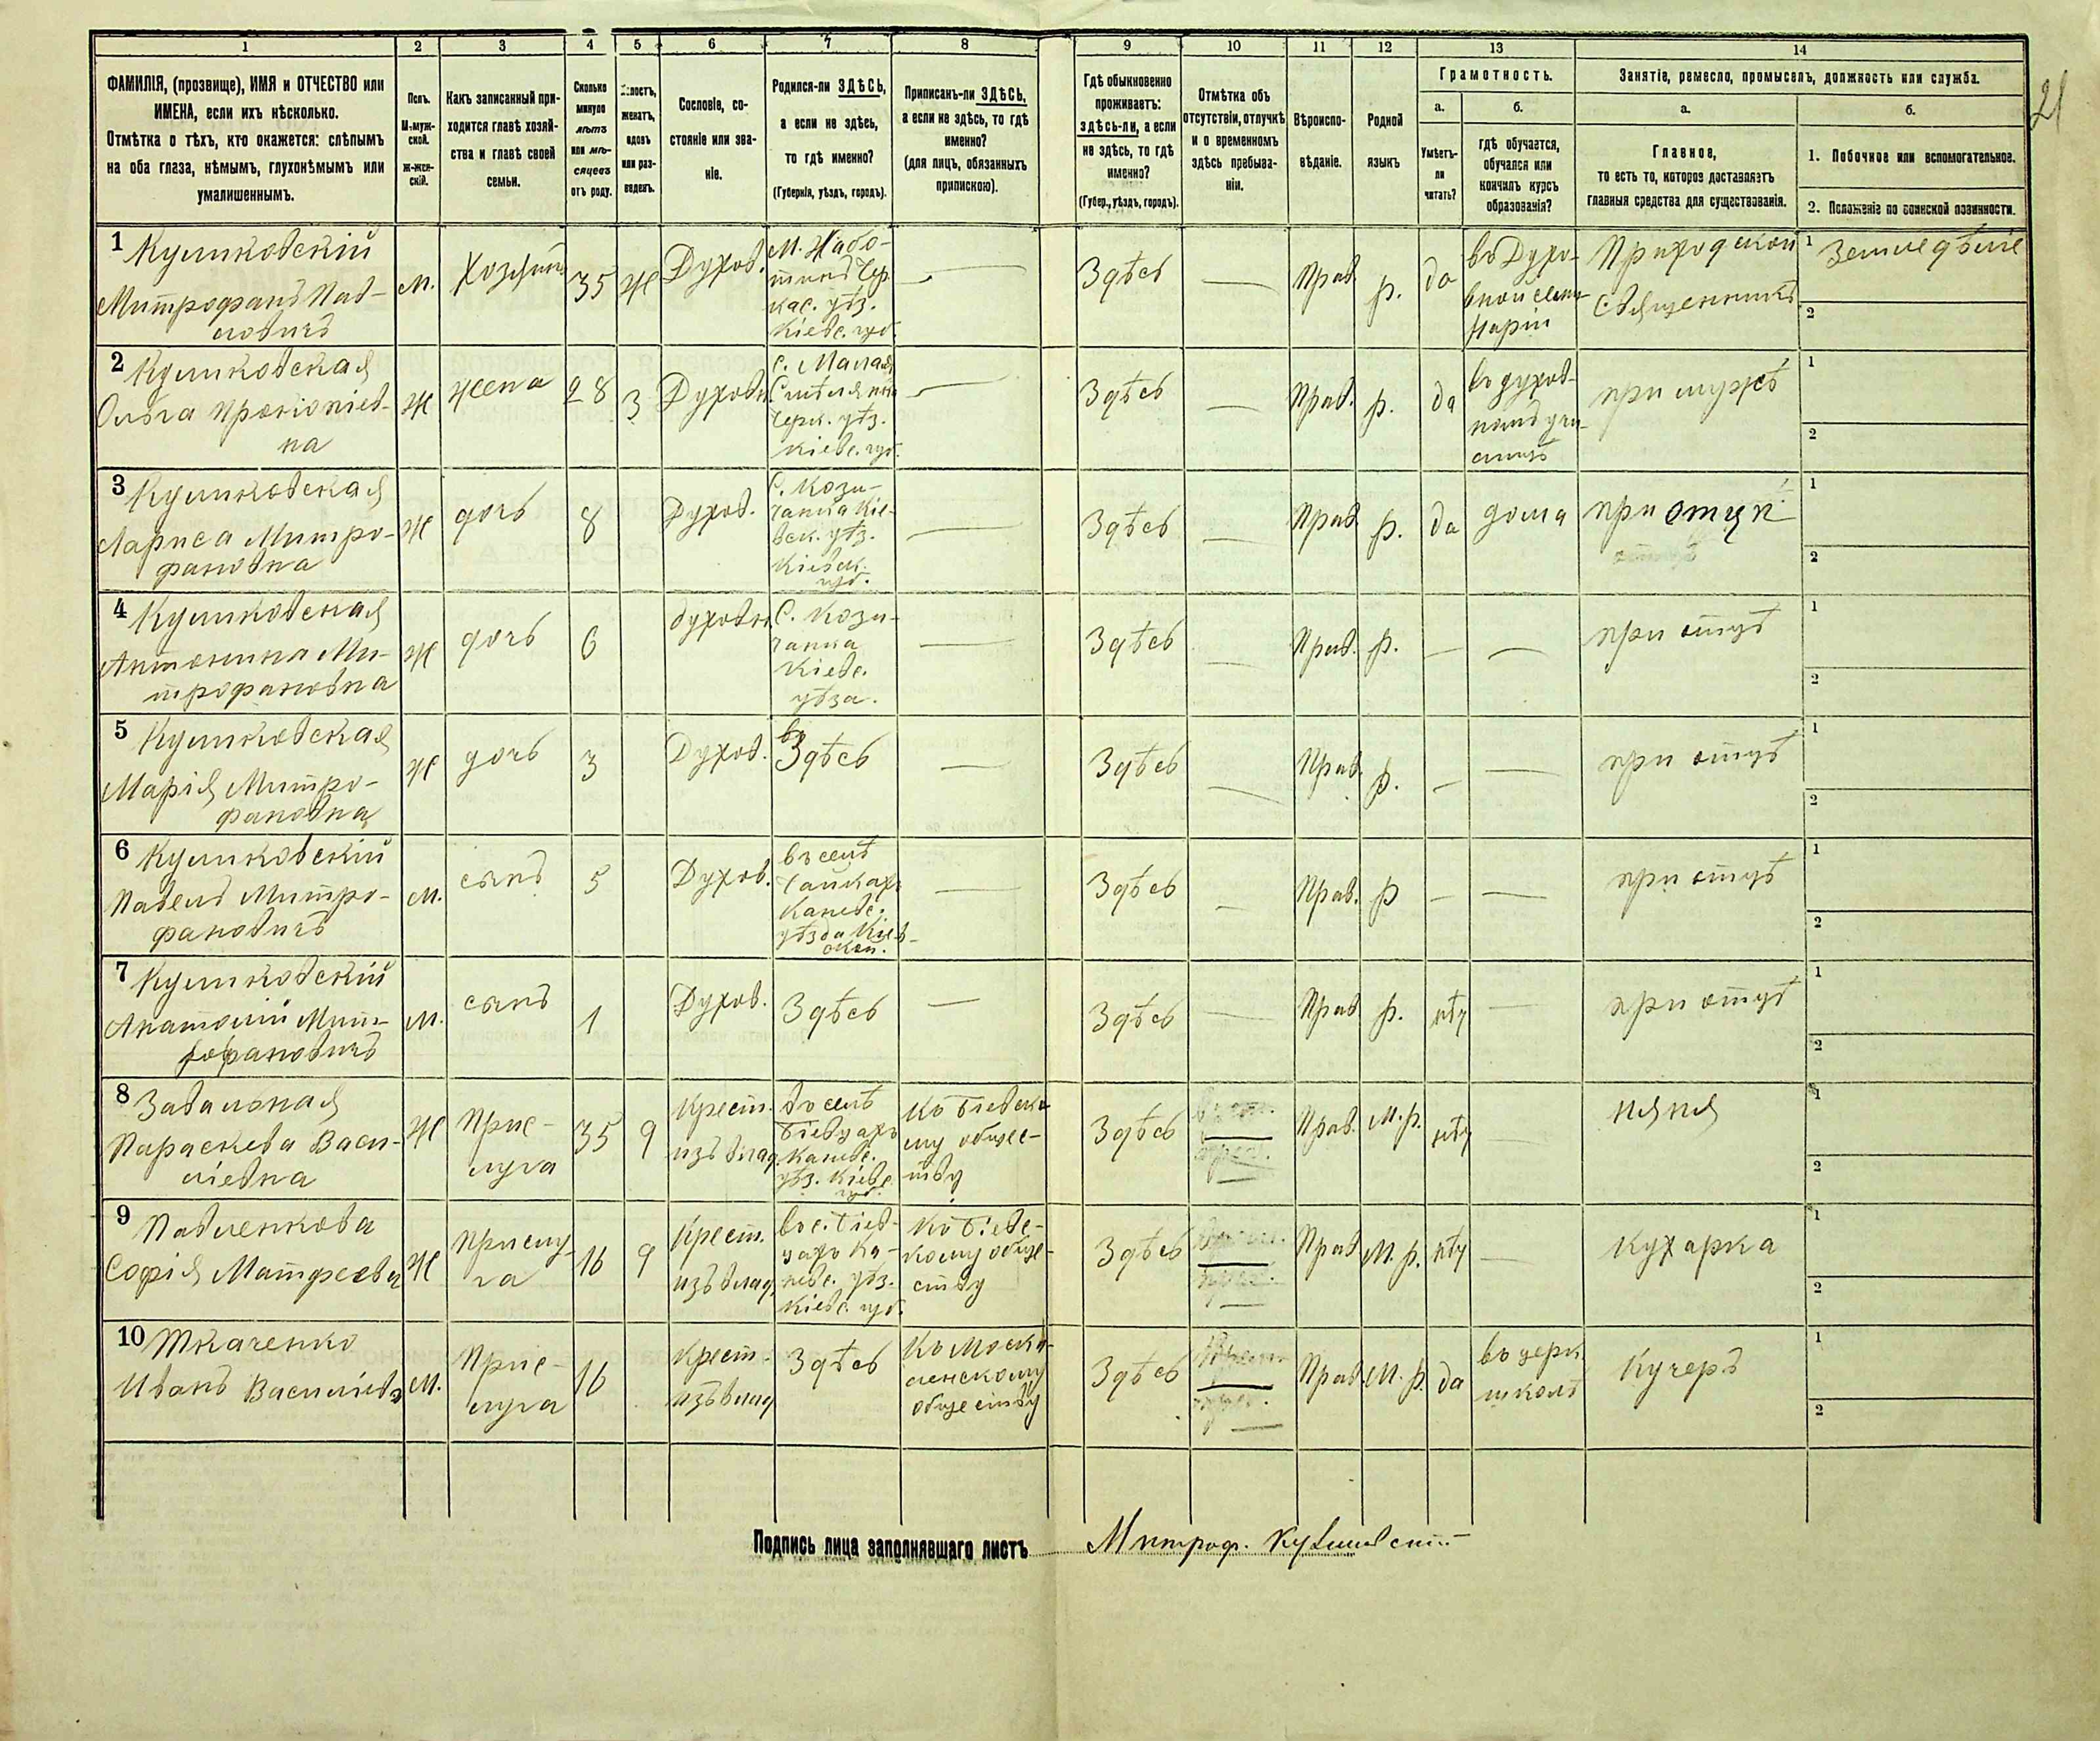 1
2
3
4
5
6
7
8
9
10
11
12
13
14
21
ФАМИЛІЯ, (прозвище), ИМЯ и ОТЧЕСТВО или
ИМЕНА, если ихъ нѣсколько.
Отмѣтка о тѣхъ, кто окажется: слѣпымъ
на оба глаза, нѣмымъ, глухонѣмымъ или
умалишеннымъ.
Полъ.
М-муж-
ской.
Ж-жен-
скій.
Какъ записанный при-
ходится главѣ хозяй-
ства и главѣ своей
семьи.
Сколько
минуло
лѣтъ
или мѣ-
сяцевъ
отъ роду.
женатъ,
вдовъ
или раз-
веденъ.
Сословіе, со-
стояніе или зва-
ніе.
Родился-ли ЗДѢСЬ,
а если не здѣсь,
то гдѣ именно?
(Губернія, уѣздъ, городъ).
Приписанъ-ли ЗДѢСЬ,
а если не здѣсь, то гдѣ
именно?
(для лицъ, обязанныхъ
припискою).
Гдѣ обыкновенно
проживаетъ:
здѣсь-ли, а если
не здѣсь, то гдѣ
именно?
(Губер., уѣздъ, городъ).
Отмѣтка объ
отсутствіи, отлучкѣ
и о временномъ
здѣсь пребыва-
ніи.
Вѣроиспо-
вѣданіе.
Родной
языкъ
Грамотность.
а.
б.
Умѣетъ-
ли
читать?
гдѣ обучается,
обучался или
кончилъ курсъ
образованія?
Занятіе, ремесло, промыселъ, должность или служба.
а.
б.
Главное,
то есть то, которое доставляетъ
главныя средства для существованія.
1. Побочное или вспомогательное.
2. Положеніе по воинской повинности.
1 Куликовскій
Митрофанъ Пав-
ловичъ
м.
Хозяинъ
35
Ж
Духов.
Кіевс. губ.
—
Здѣсь
—
Прав
р.
да
въ Духо-
вной семи-
наріи
Приходской
Священникъ
1 Земледѣліе
2
2 Куликовская
Ольга Прокопіев-
на
Ж
жена
28
З
Духовн.
С. Малая
Смѣлянка
Черк. уѣз.
Кіевс. губ.
—
Здѣсь
—
Прав.
р.
да
въ духов-
номъ учи-
лищѣ
при мужѣ
1
2
3 Куликовская
Лариса Митро-
фановна
Ж
дочь
8
Духов.
С. Кози-
чанка Кіе-
вск. уѣз.
Кіевск.
губ.
—
Здѣсь
—
Прав
р.
да
дома
при отцѣ
1
2
4 Куликовская
Антонина Ми-
трофановна
Ж
дочь
6
духовн.
С. Кози-
чанка
Кіевс.
уѣза.
—
Здѣсь
—
Прав.
р.
—
—
при отцѣ
1
2
5 Куликовская
Марія Митро-
фановна
Ж
дочь
3
Духов.
Здѣсь
—
Здѣсь
—
Прав.
р.
—
—
при отцѣ
1
2
6 Куликовскій
Павелъ Митро-
фановичъ
м.
сынъ
5
Духов.
въ селѣ
Каневс.
уѣзда Кіев-
ской.
—
Здѣсь
—
Прав.
р
—
—
при отцѣ
1
2
7 Куликовскій
Анатолій Мит-
рофановичъ
м.
сынъ
1
Духов.
Здѣсь
—
Здѣсь
—
Прав
р.
нѣт
—
при отцѣ
1
2
8 Завальная
Параскева Васи-
ліевна
Ж
Прис-
луга
35
9
Крест.
изъ влад.
въ селѣ
Каневс.
уѣз. Кіевс.
губ.
обще-
ству
Здѣсь
Прав.
М.р.
нѣт
—
няня
1
2
9 Павленкова
Софія Матфеевна
Ж
Прислу-
га
16
9
Крест.
изъ влад.
Ка-
невс. уѣз.
Кіевс. губ.
обще-
ству
Здѣсь
Прав
М.р.
нѣт
—
Кухарка
1
2
10 Ткаченко
Иванъ Василіевъ
м.
Прис-
луга
16
Крест.
изъ влад
Здѣсь
Къ Моска-
ленскому
обществу
Здѣсь
Прав.
М.р.
да
въ церк.
школѣ
Кучеръ
1
2
Подпись лица заполнявшаго листъ Митроф. Куликовскій